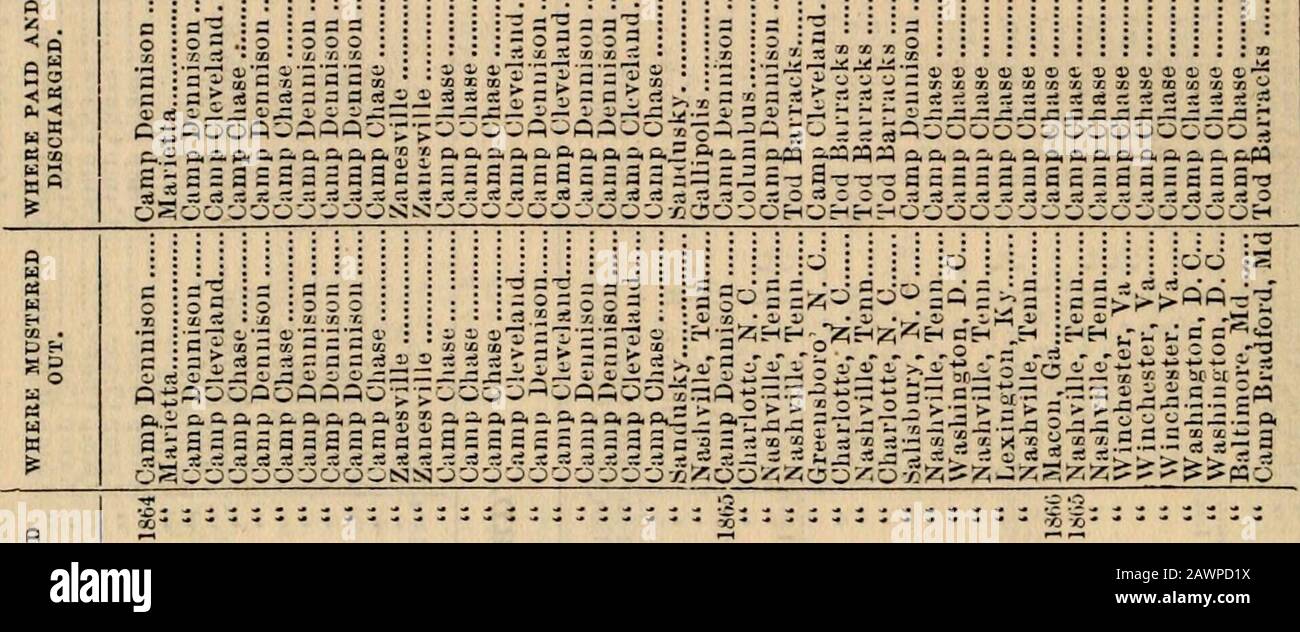 D WHERE MUSTERED WHERE PAID AND
OUT. DISCHARGED.
1864 Camp Dennison ..... Camp Dennison ..
“ Marietta............... Marietta............
“ Camp Dennison ..... Camp Dennison ..
“ Camp Cleveland..... Camp Cleveland.
“ Camp Chase.......... Camp Chase.......
“ Camp Dennison ..... Camp Dennison ..
“ Camp Chase.......... Camp Chase.......
“ Camp Dennison ..... Camp Dennison ..
“ Camp Dennison ..... Camp Dennison ..
“ Camp Dennison ..... Camp Dennison ..
“ Camp Chase.......... Camp Chase.......
“ Zanesville ............ Zanesville .........
“ Zanesville ............ Zanesville .........
“ Camp Chase.......... Camp Chase.......
“ Camp Chase.......... Camp Chase.......
“ Camp Chase.......... Camp Chase.......
“ Camp Cleveland..... Camp Cleveland.
“ Camp Dennison..... Camp Dennison ..
“ Camp Cleveland..... Camp Cleveland.
“ Camp Dennison..... Camp Dennison ..
“ Camp Dennison..... Camp Dennison ..
“ Camp Cleveland..... Camp Cleveland.
“ Camp Chase.......... Camp Chase.......
“ Sandusky.............. Sandusky...........
“ Nashville, Tenn...... Gallipolis...........
1865 Camp Dennison...... Camp Dennison ..
“ Charlotte, N. C....... Columbus...........
“ Nashville, Tenn...... Camp Dennison ..
“ Nashville, Tenn...... Tod Barracks......
“ Greensboro', N. C... Camp Cleveland.
“ Charlotte, N. C....... Tod Barracks ....
“ Nashville, Tenn...... Tod Barracks ....
“ Charlotte, N. C....... Tod Barracks ....
“ Salisbury, N. C ...... Camp Dennison ..
“ Nashville, Tenn...... Camp Chase ......
“ Washington, D. C... Camp Chase ......
“ Nashville, Tenn...... Camp Chase ......
“ Lexington, Ky........ Camp Chase ......
“ Nashville, Tenn ..... Camp Chase ......
1866 Macon, Ga............. Camp Chase ......
1865 Nashville, Tenn...... Camp Chase ......
“ Nashville, Tenn...... Camp Chase ......
“ Winchester, Va ...... Camp Chase ......
“ Winchester, Va....... Camp Chase ......
“ Winchester. Va....... Camp Chase ......
“ Washington, D. C... Camp Chase ......
“ Washington, D. C... Camp Chase ......
“ Baltimore, Md ....... Camp Chase.......
“ Camp Bradford, Md Tod Barracks ....
alamy
Image ID: 2AWPD1X
www.alamy.com